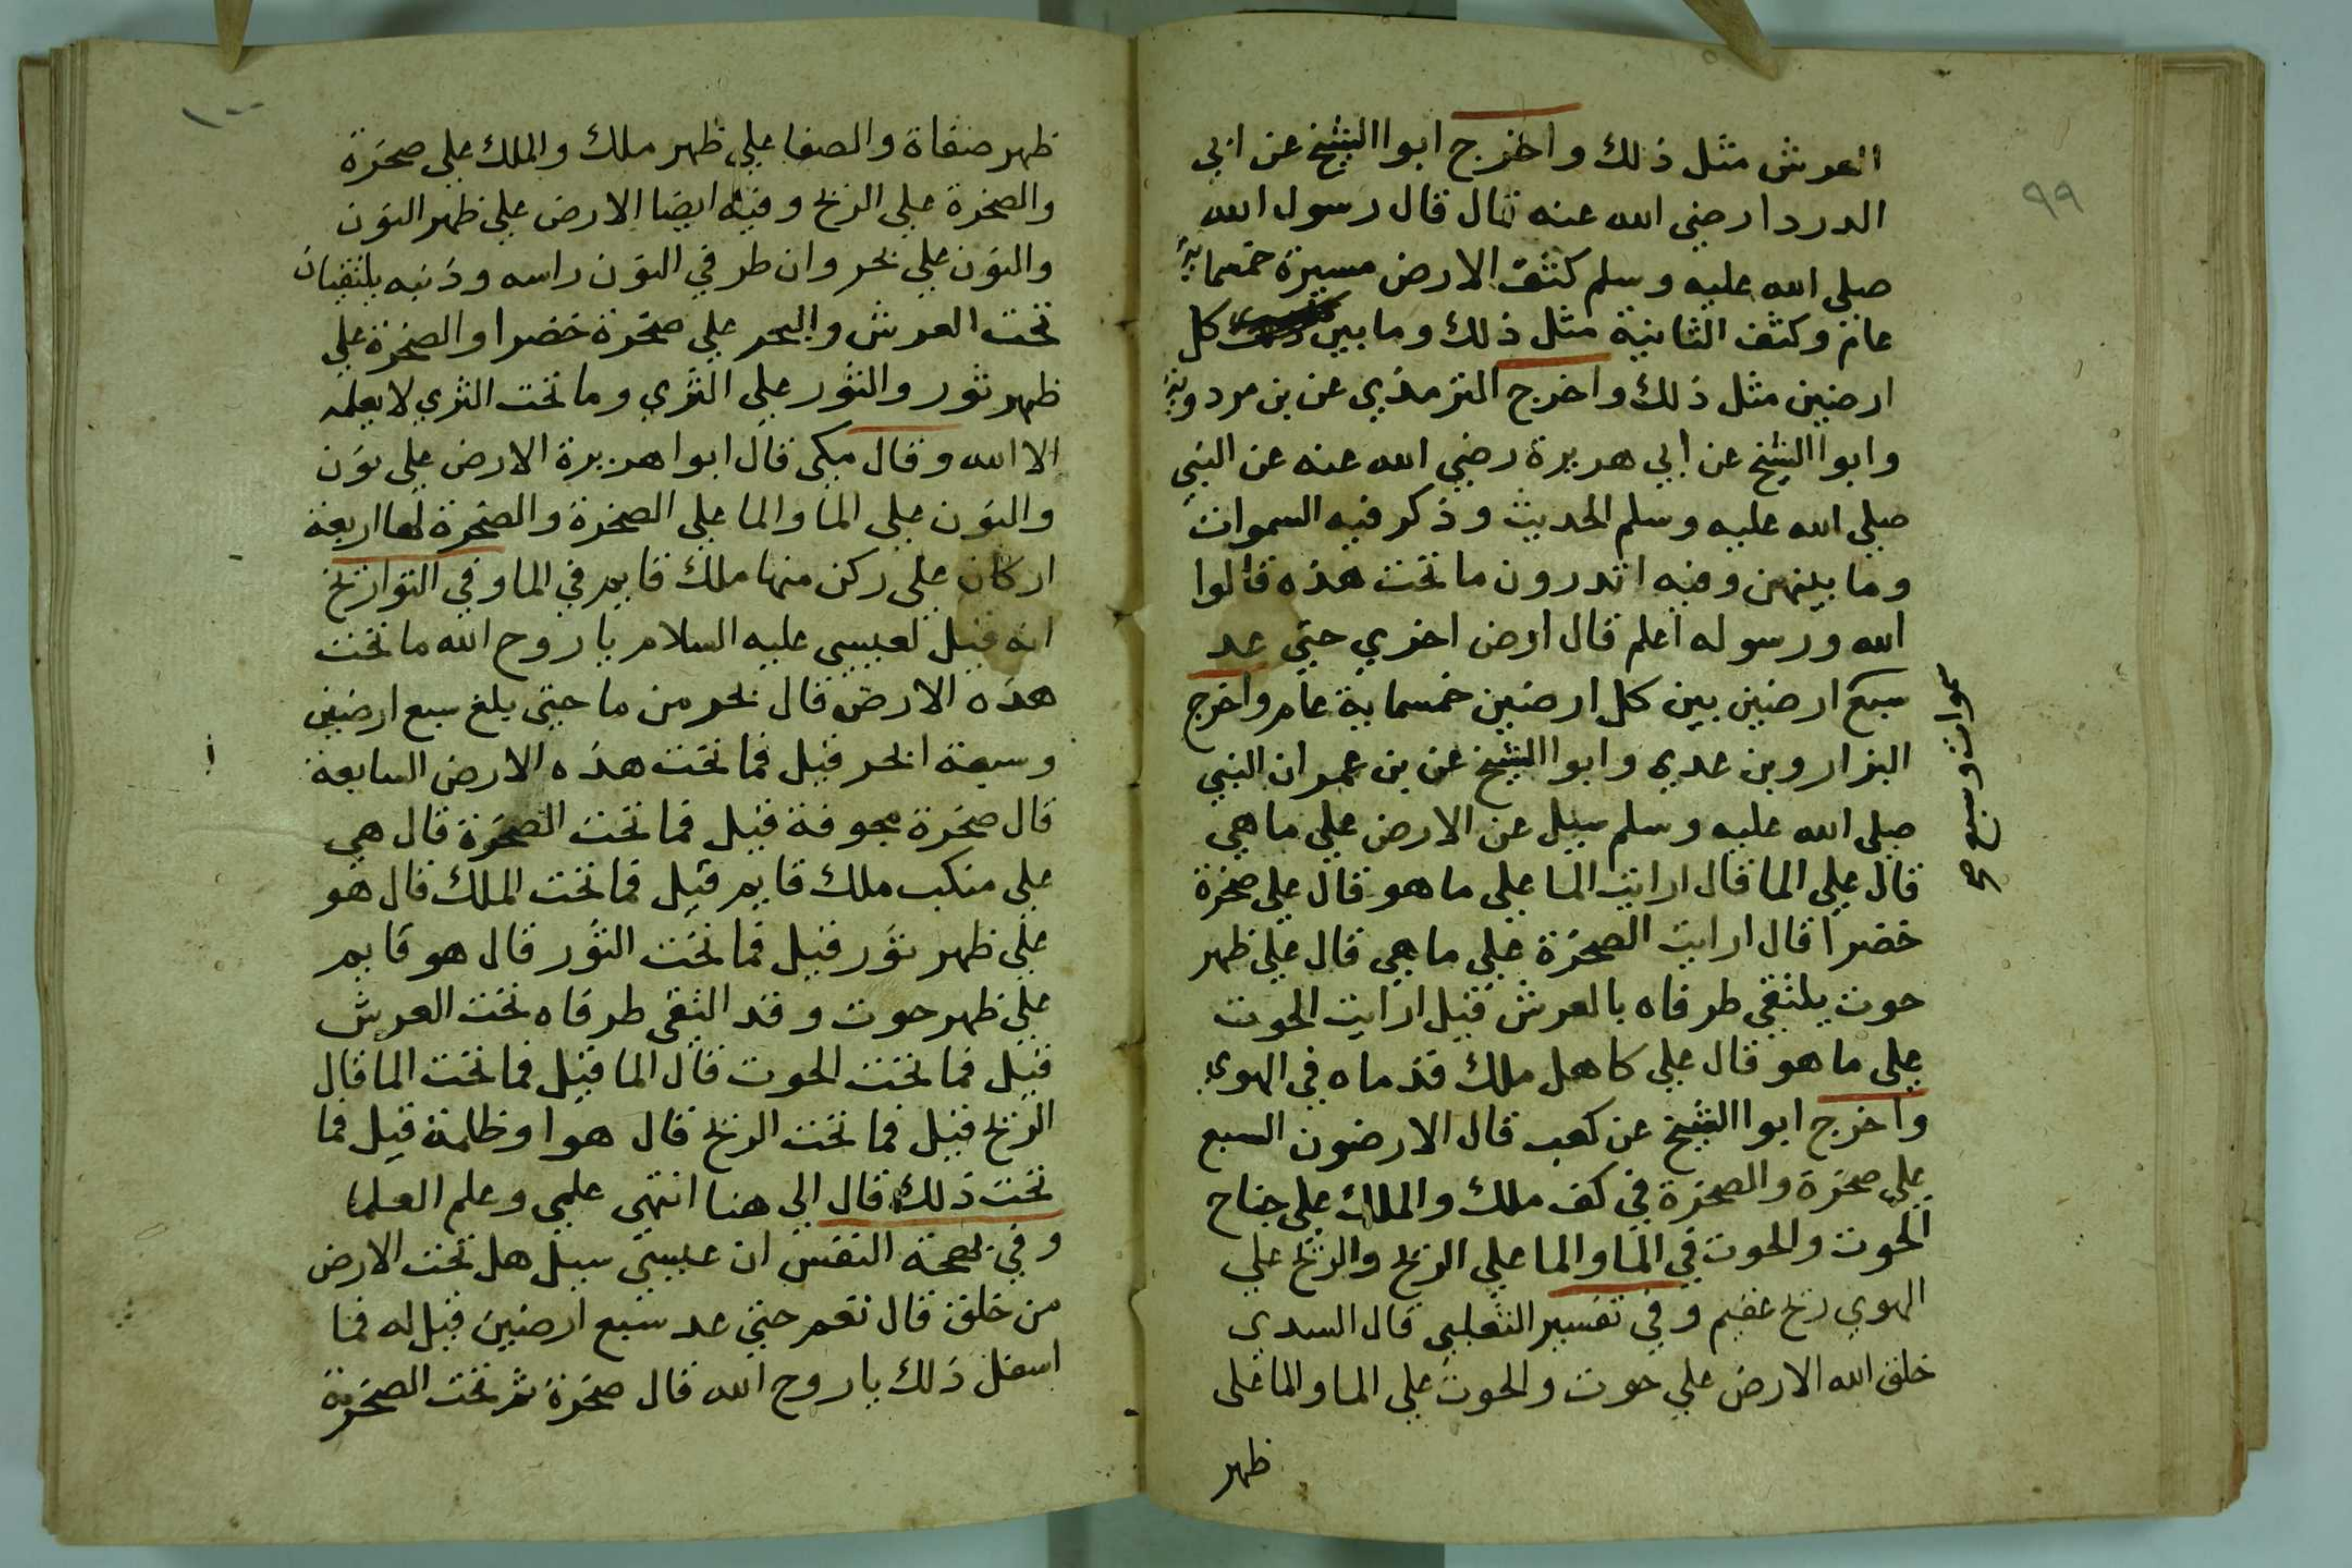 ٩٩
العرش مثل ذلك واخرج ابوا الشيخ عن ابي
الدردا رضي الله عنه قال قال رسول الله
صلي الله عليه وسلم كثف الارض مسيرة خمسماية
عام وكثف الثانية مثل ذلك وما بين كل
ارضين مثل ذلك واخرج الترمذي عن بن مردوية
وابوا الشيخ عن ابي هريرة رضي الله عنه عن النبي
صلي الله عليه وسلم الحديث وذكر فيه السموات
وما بينهن وفيه اتدرون ما تحت هذه قالوا
الله ورسوله اعلم قال ارض اخري حتي عد
سبع ارضين بين كل ارضين خمسماية عام واخرج
البزار وبن عدي وابوا الشيخ عن بن عمر ان النبي
صلي الله عليه وسلم سيل عن الارض علي ما هي
قال علي الما قال ارايت الما علي ما هو قال علي صخرة
خضرا قال ارايت الصخرة علي ما هي قال علي ظهر
حوت يلتقي طرفاه بالعرش قيل ارايت الحوت
علي ما هو قال علي كاهل ملك قدماه في الهوي
واخرج ابوا الشيخ عن كعب قال الارضون السبع
علي صخرة والصخرة في كف ملك والملك علي جناح
الحوت والحوت في الما والما علي الريح والريح علي
الهوي ريح عقيم وفي تفسير الثعلبي قال السدي
خلق الله الارض علي حوت والحوت علي الما والما علي
ظهر
سموات وسبع صح
١٠٠
ظهر صفاة والصفا علي ظهر ملك والملك علي صخرة
والصخرة علي الريح وفيه ايضا الارض علي ظهر النون
والنون علي بحر وان طرفي النون راسه وذنبه يلتقيان
تحت العرش والبحر علي صخرة خضرا والصخرة علي
ظهر ثور والثور علي الثري وما تحت الثري لا يعلمه
الا الله وقال مكي قال ابوا هريرة الارض علي نون
والنون علي الما والما علي الصخرة والصخرة لها اربعة
اركان علي ركن منها ملك قايم في الما وفي التواريخ
انه قيل لعيسي عليه السلام يا روح الله ما تحت
هذه الارض قال بحر من ما حتي بلغ سبع ارضين
وسبعة ابحر قيل فما تحت هذه الارض السابعة
قال صخرة مجوفة قيل فما تحت الصخرة قال هي
علي منكب ملك قايم قيل فما تحت الملك قال هو
علي ظهر ثور قيل فما تحت الثور قال هو قايم
علي ظهر حوت وقد التقي طرفاه تحت العرش
قيل فما تحت الحوت قال الما قيل فما تحت الما قال
الريح قيل فما تحت الريح قال هوا وظلمة قيل فما
تحت ذلك قال الي هنا انتهي علمي وعلم العلما
وفي بهجة النفس ان عيسي سيل هل تحت الارض
من خلق قال نعم حتي عد سبع ارضين قيل له فما
اسفل ذلك يا روح الله قال صخرة ثم تحت الصخرة